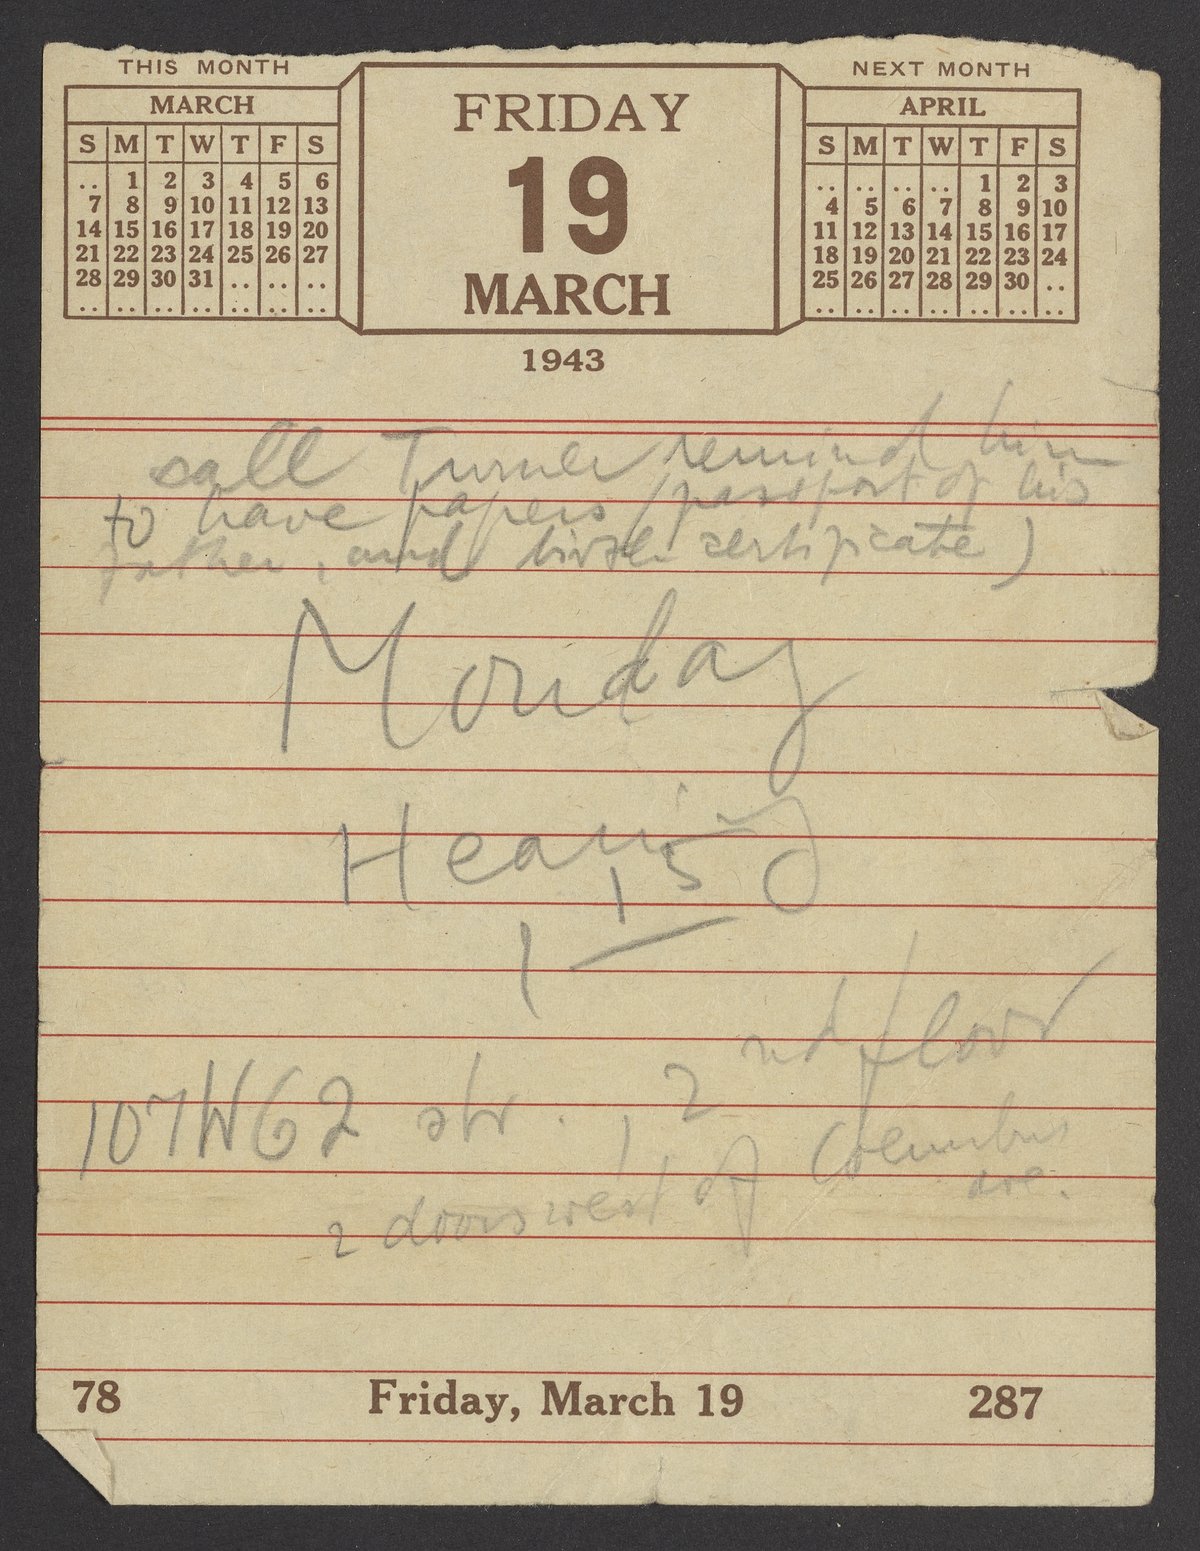 THIS MONTH
MARCH
S M T W T F S
.. 1 2 3 4 5 6
7 8 9 10 11 12 13
14 15 16 17 18 19 20
21 22 23 24 25 26 27
28 29 30 31 .. .. ..
.. .. .. .. .. .. ..
FRIDAY
19
MARCH
1943
NEXT MONTH
APRIL
S M T W T F S
.. .. .. .. 1 2 3
4 5 6 7 8 9 10
11 12 13 14 15 16 17
18 19 20 21 22 23 24
25 26 27 28 29 30 ..
.. .. .. .. .. .. ..
call Turner remind him
to have papers (passport of his
father, and birth certificate)
Monday
Hearing
1 15
107 W 62 str. , 2nd floor
2 doors west of
ave.
78 Friday, March 19 287